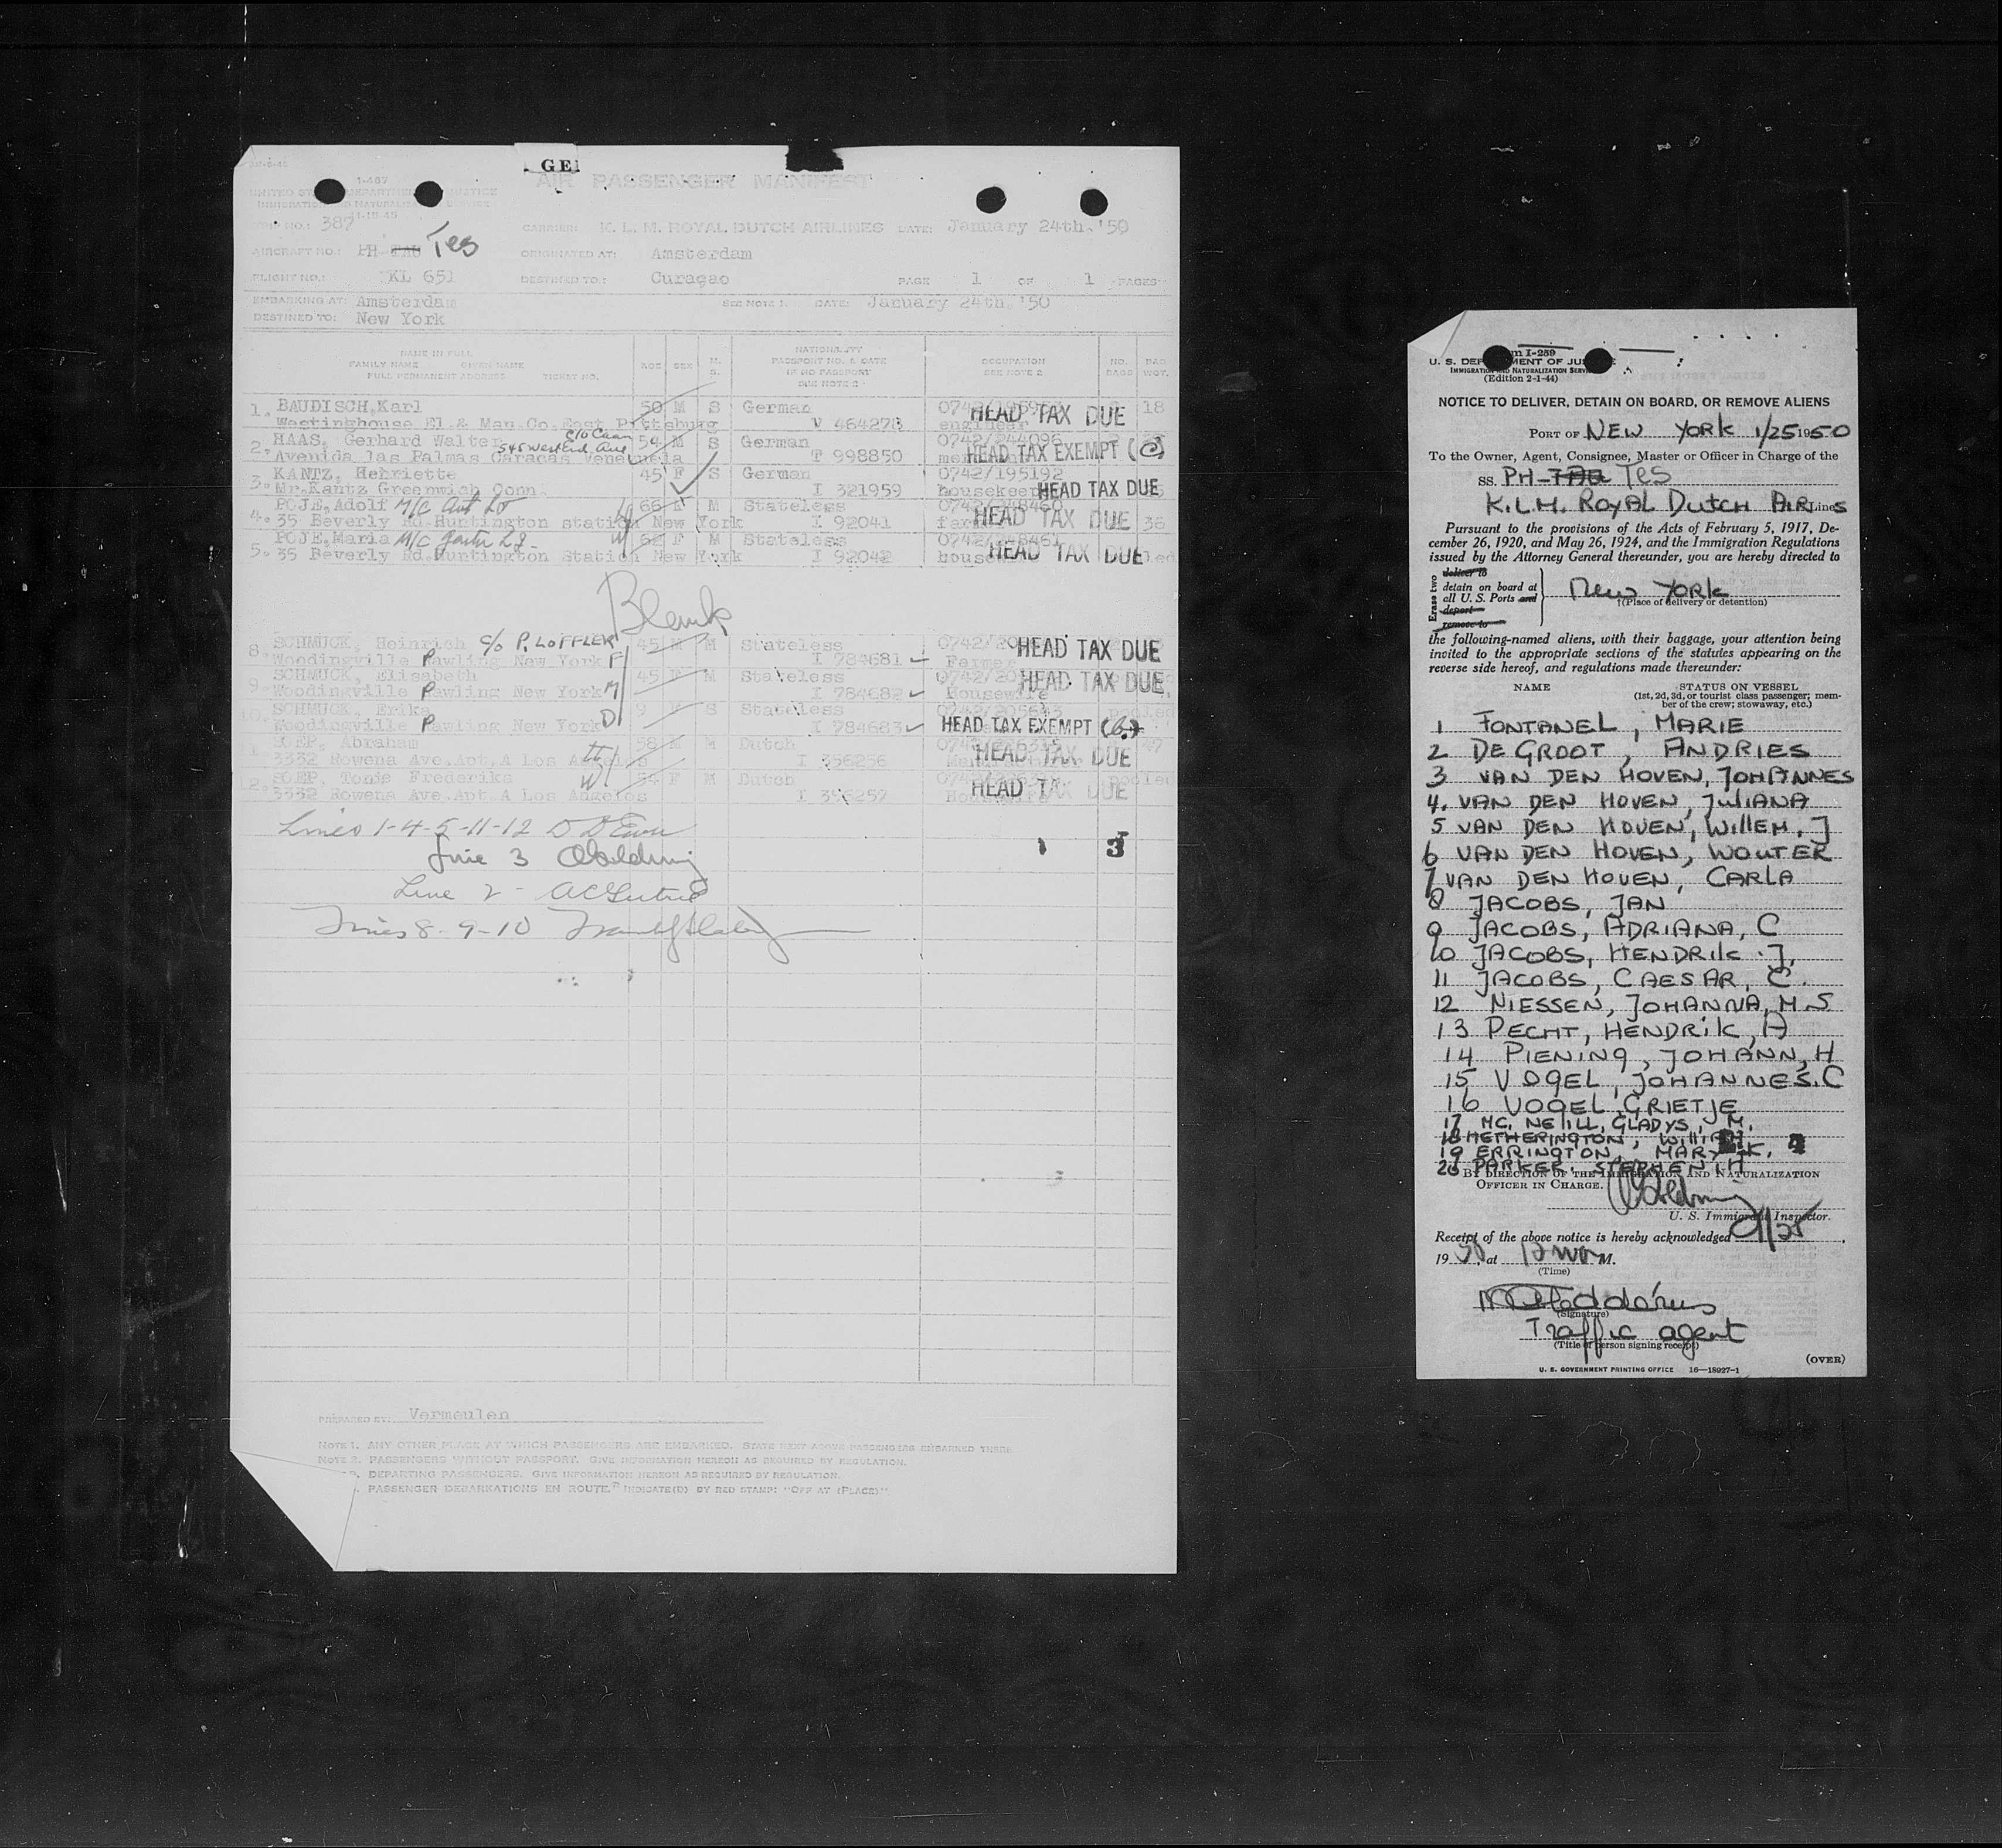 GE
1-407
AIR PASSENGER MANIFEST
UNITED DEPARTMENT JUSTICE
IMMIGRATION NATURALIZATION
11-18-48
NO.: 387
CARRIER: K. L. M. ROYAL DUTCH AIRLINES DATE: January 24th. '50
AIRCRAFT NO.: PH-TAU Tes
ORIGINATED AT: Amsterdam
FLIGHT NO.: KL 651
DESTINED TO.: Curaçao PAGE 1 OF 1 PAGES
EMBARKING AT: Amsterdam SEE NOTE 1. DATE: January 24th. '50
DESTINED TO: New York
NAME IN FULL
FAMILY NAME GIVEN NAME
FULL PERMANENT ADDRESS TICKET NO.
AGE SEX M. S.
NATIONALITY
PASSPORT NO. & DATE
IF NO PASSPORT
SEE NOTE 2
OCCUPATION
SEE NOTE 2
NO. BAGS
BAG WGT.
1. BAUDISCH, Karl 50 M S German HEAD TAX DUE 18
Westinghouse El & Man.Co.East Pittsburg V 464273 engineer
2. HAAS, Gerhard Walter 54 M S German 0742/244096
545 West End Ave
Avenida las Palmas Caracas Venezuela T 998850 HEAD TAX EXEMPT (C)
3. KANTZ, Henriette 45 F S German 0742/195192
Mr.Kantz Greenwich Conn. I 321959 housekeep HEAD TAX DUE
4. POJE, Adolf 66 M Stateless 0742/248460
35 Beverly Rd.Huntington station New York I 92041 HEAD TAX DUE 36
5. POJE, Maria 62 F M Stateless 0742/248461
35 Beverly Rd.Huntington Station New York I 92042 housewife HEAD TAX DUE
Blank
8. SCHMUCK, Heinrich c/o P. LOFFLER 45 M M Stateless HEAD TAX DUE
Woodingville Pawling New York F I 784681 Farmer
9. SCHMUCK, Elisabeth 45 F M Stateless HEAD TAX DUE
Woodingville Pawling New York M I 784682 Housewife
SCHMUCK, Erika 9 F S Stateless 0742/205643 pooled
Woodingville Pawling New York D I 784683 HEAD TAX EXEMPT
SOEP, Abraham 58 M M Dutch 47
3332 Rowena Ave.Apt.A Los Angeles I 356256 HEAD TAX DUE
12. SOEP, Tonie Frederika 54 F M Dutch pooled
3332 Rowena Ave.Apt.A Los Angelos I 356257 Housewife HEAD TAX DUE
Lines 1-4-5-11-12
Line 3
1 3
Line 2
Lines 8-9-10
PREPARED BY: Vermeulen
NOTE 1. ANY OTHER PLACE AT WHICH PASSENGERS ARE EMBARKED. STATE NEXT ABOVE PASSENGERS EMBARKED THERE
NOTE 2. PASSENGERS WITHOUT PASSPORT. GIVE INFORMATION HEREON AS REQUIRED BY REGULATION.
DEPARTING PASSENGERS. GIVE INFORMATION HEREON AS REQUIRED BY REGULATION.
PASSENGER DEBARKATIONS EN ROUTE. INDICATE(D) BY RED STAMP: "OFF AT (PLACE)"
m I-259
U. S. DEPARTMENT OF JUSTICE
IMMIGRATION AND NATURALIZATION SERV
(Edition 2-1-44)
NOTICE TO DELIVER, DETAIN ON BOARD, OR REMOVE ALIENS
PORT OF NEW YORK 1/25 1950
To the Owner, Agent, Consignee, Master or Officer in Charge of the
SS. PH-TAU TES
K.L.M. ROYAL DUTCH AIR Lines
Pursuant to the provisions of the Acts of February 5, 1917, De-
cember 26, 1920, and May 26, 1924, and the Immigration Regulations
issued by the Attorney General thereunder, you are hereby directed to
Erase two
deliver to
detain on board at
all U. S. Ports and
deport
remove to
New York
†(Place of delivery or detention)
the following-named aliens, with their baggage, your attention being
invited to the appropriate sections of the statutes appearing on the
reverse side hereof, and regulations made thereunder:
NAME STATUS ON VESSEL
(1st, 2d, 3d, or tourist class passenger; mem-
ber of the crew; stowaway, etc.)
1 FONTANEL, MARIE
2 DE GROOT, ANDRIES
3 VAN DEN HOVEN, JOHANNES
4. VAN DEN HOVEN, JULIANA
5 VAN DEN HOVEN, WILLEM. J
6 VAN DEN HOVEN, WOUTER
7 VAN DEN HOVEN, CARLA
8 JACOBS, JAN
9 JACOBS, ADRIANA, C
10 JACOBS, HENDRIK. J.
11 JACOBS, CAESAR, C.
12 NIESSEN, JOHANNA, M.S
13 PECHT, HENDRIK, A
14 PIENING, JOHANN, H
15 VOGEL, JOHANNES.C
16 VOGEL, GRIETJE
17 MC. NEILL, GLADYS, M.
18 HETHERINGTON, WILLIAM
19 ERRINGTON, MARY K.
20 PARKER. STEPHEN H
BY DIRECTION OF THE IMMIGRATION AND NATURALIZATION
OFFICER IN CHARGE.
U. S. Immigrant Inspector.
Receipt of the above notice is hereby acknowledged 1/25,
1950, at 12 noon M.
(Time)
(Signature)
Traffic agent
(Title of person signing receipt)
(OVER)
U. S. GOVERNMENT PRINTING OFFICE 16—18027-1